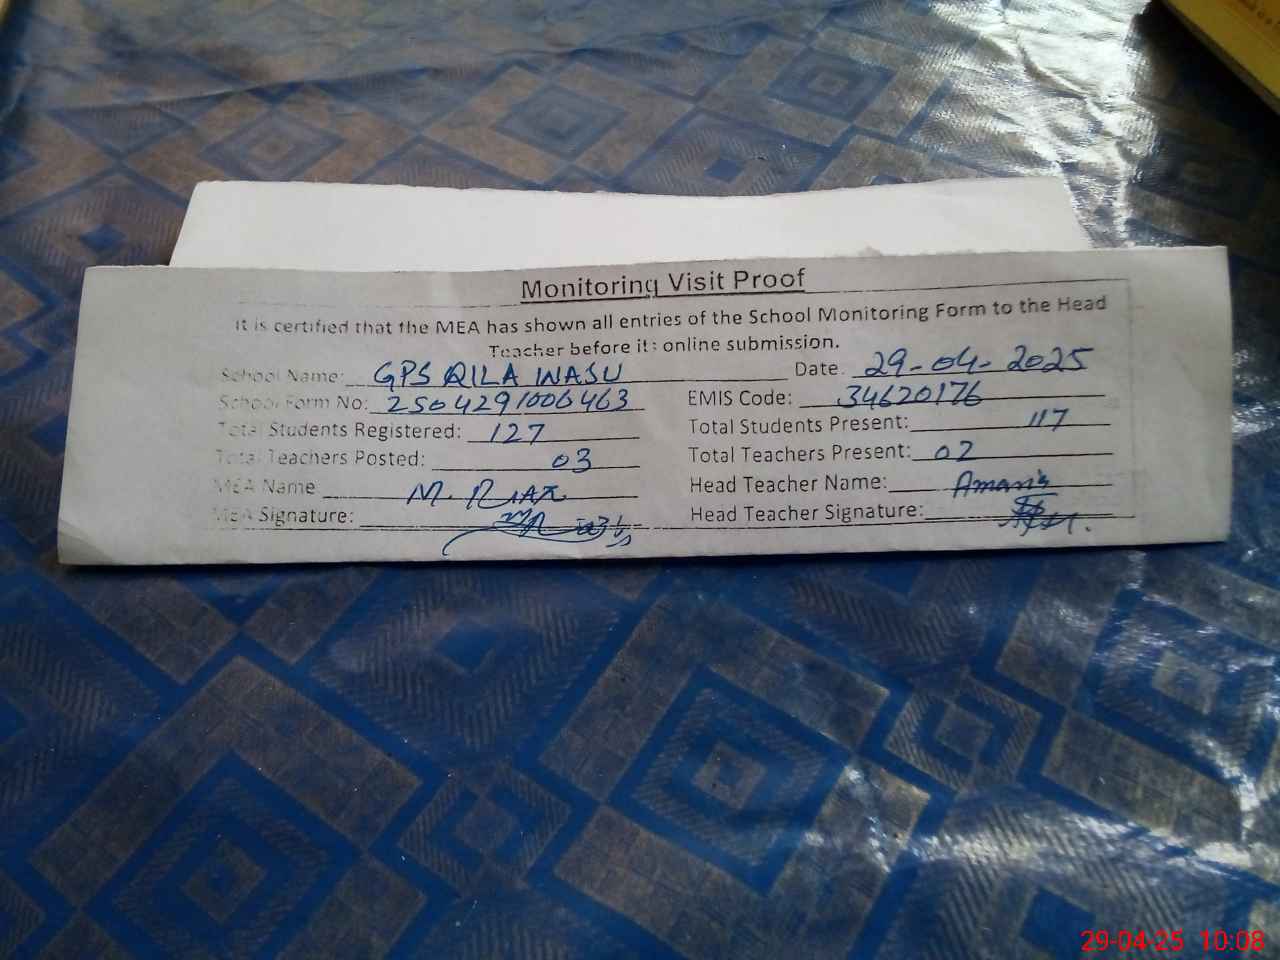 Monitoring Visit Proof
It is certified that the MEA has shown all entries of the School Monitoring Form to the Head
Teacher before its online submission.
School Name: GPS QILA WASU Date: 29-04-2025
School Form No: 2504291006463 EMIS Code: 34620176
Total Students Registered: 127 Total Students Present: 117
Total Teachers Posted: 03 Total Teachers Present: 02
MEA Name M. RIAZ Head Teacher Name:
MEA Signature: Head Teacher Signature:
29-04-25 10:08